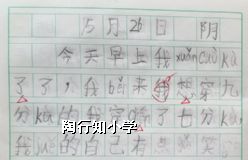 5月26日 阴
今天早上我xuǎn cuò kù
了了，我běn来我想穿九
分kù的我穿了七分kù
陶行知小学
我的自己有